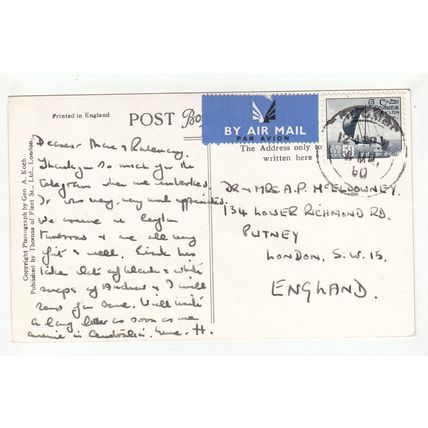 Printed in England
POST
BY AIR MAIL
PAR AVION
The Address only to
written here
Copyright Photograph by Geo A. Koch
Published by Thomas of Fleet St., Ltd., London.
Dearest
Thank you so much for the
telegram when we embarked.
It was very, very much appreciated.
We arrive in Ceylon
tomorrow & we are all very
fit & well.
taken lots of black & white
snaps of & I will
send you some. Will write
a long letter as soon as we
arrive in Australia. Love. H.
DR & MRS A.P. McELDOWNEY.
134 LOWER RICHMOND RD.
PUTNEY
LONDON. S.W. 15.
ENGLAND.
60